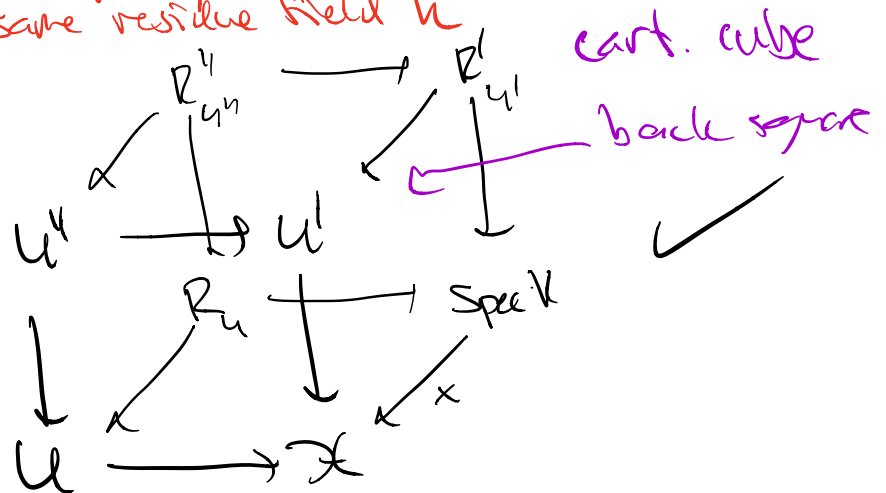 same residue field k
cart. cube
R''_{u''} R'_{u'}
back square
u'' u'
R_u Spec k
x
u 𝒳